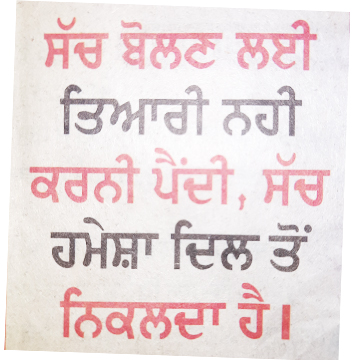 ਸੱਚ ਬੋਲਣ ਲਈ
ਤਿਆਰੀ ਨਹੀ
ਕਰਨੀ ਪੈਂਦੀ, ਸੱਚ
ਹਮੇਸ਼ਾ ਦਿਲ ਤੋਂ
ਨਿਕਲਦਾ ਹੈ।